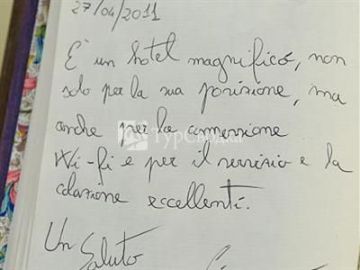 27/04/2011
È un hotel magnifico, non
solo per la sua posizione, ma
anche per la connessione
Wi-fi e per il servizio e la
colazione eccellenti.
Un
Saluto